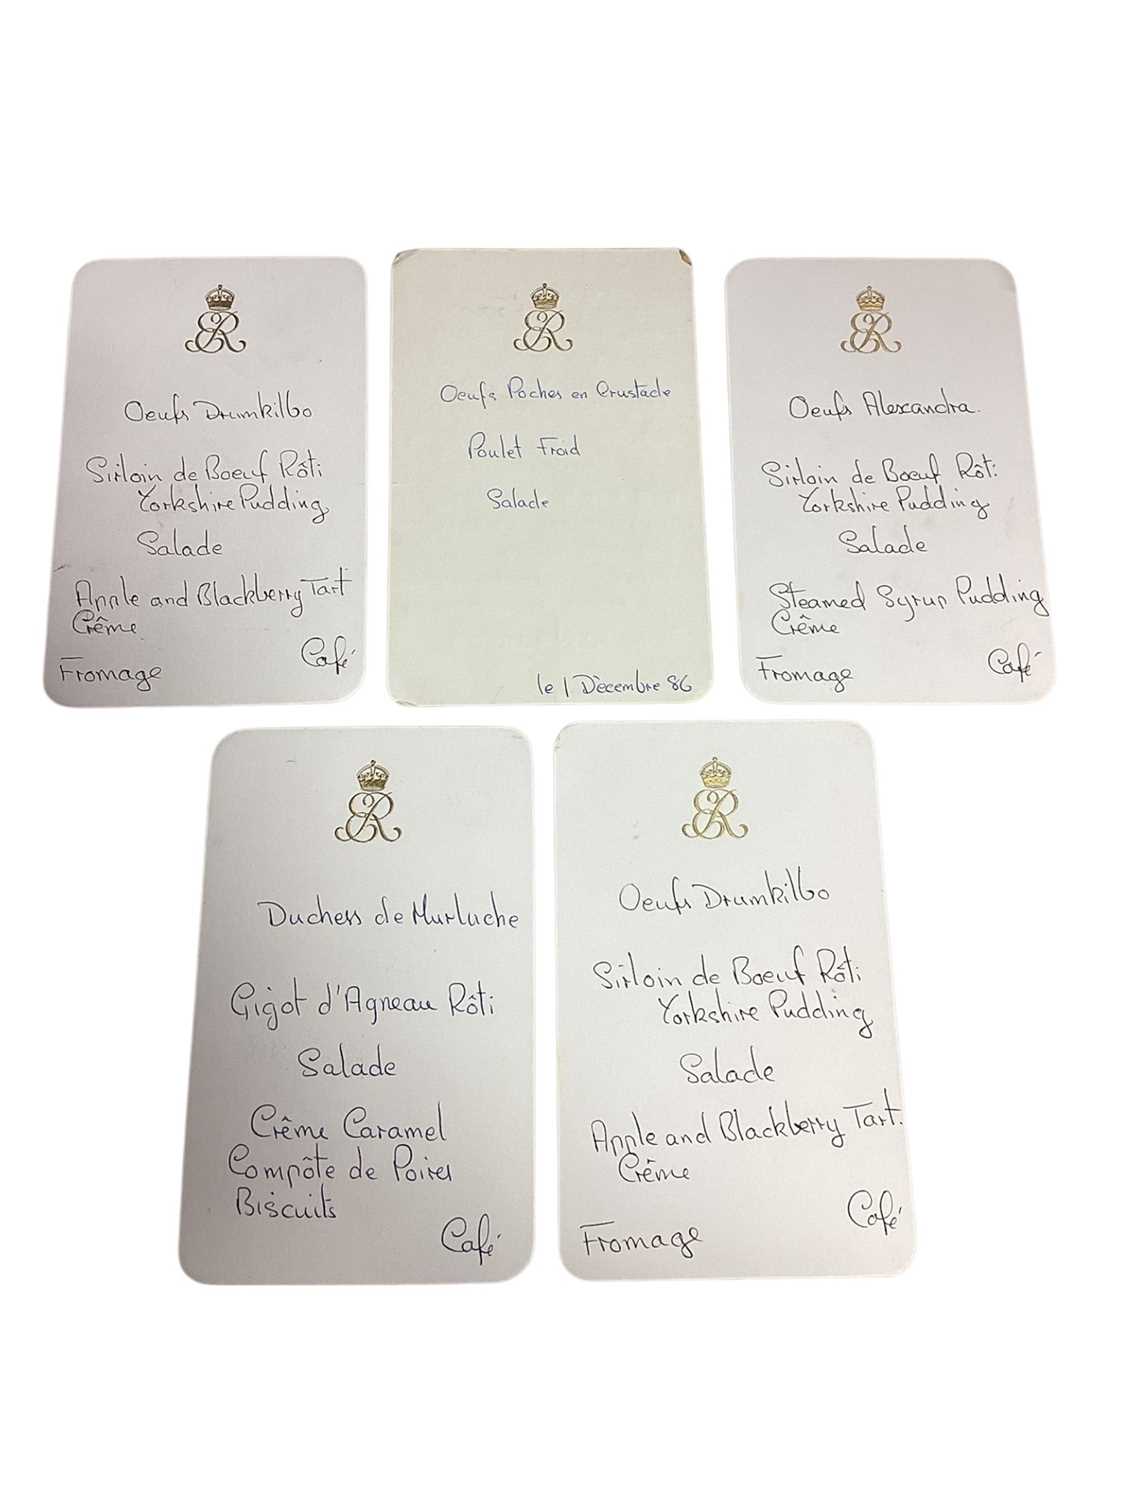 ER
Oeufs Drumkilbo
Sirloin de Boeuf Rôti
Yorkshire Pudding
Salade
Apple and Blackberry Tart
Crême
Café
Fromage
ER
Oeufs Poches en Crustade
Poulet Froid
Salade
le 1 Dècembre 86
ER
Oeufs Alexandra.
Sirloin de Boeuf Rôti
Yorkshire Pudding
Salade
Steamed Syrup Pudding
Crême
Café
Fromage
ER
Duchess de Murluche
Gigot d'Agneau Rôti
Salade
Crême Caramel
Compôte de Poires
Biscuits
Café
ER
Oeufs Drumkilbo
Sirloin de Boeuf Rôti
Yorkshire Pudding
Salade
Apple and Blackberry Tart.
Crême
Café
Fromage